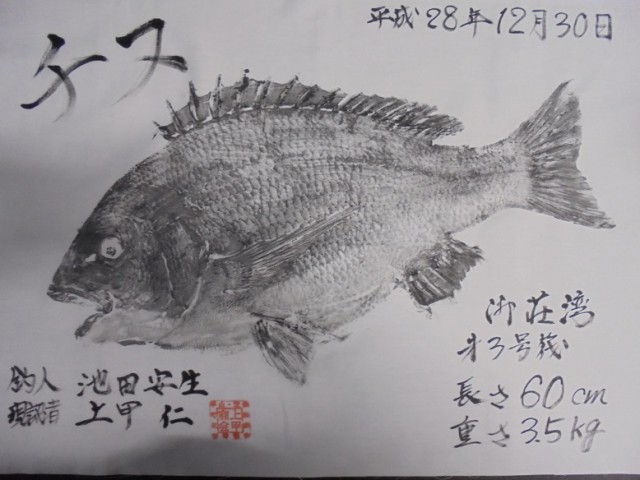 チヌ
平成28年12月30日
御荘湾
才3号筏
長さ60cm
重さ3.5kg
釣人 池田安生
現認者 土甲 仁